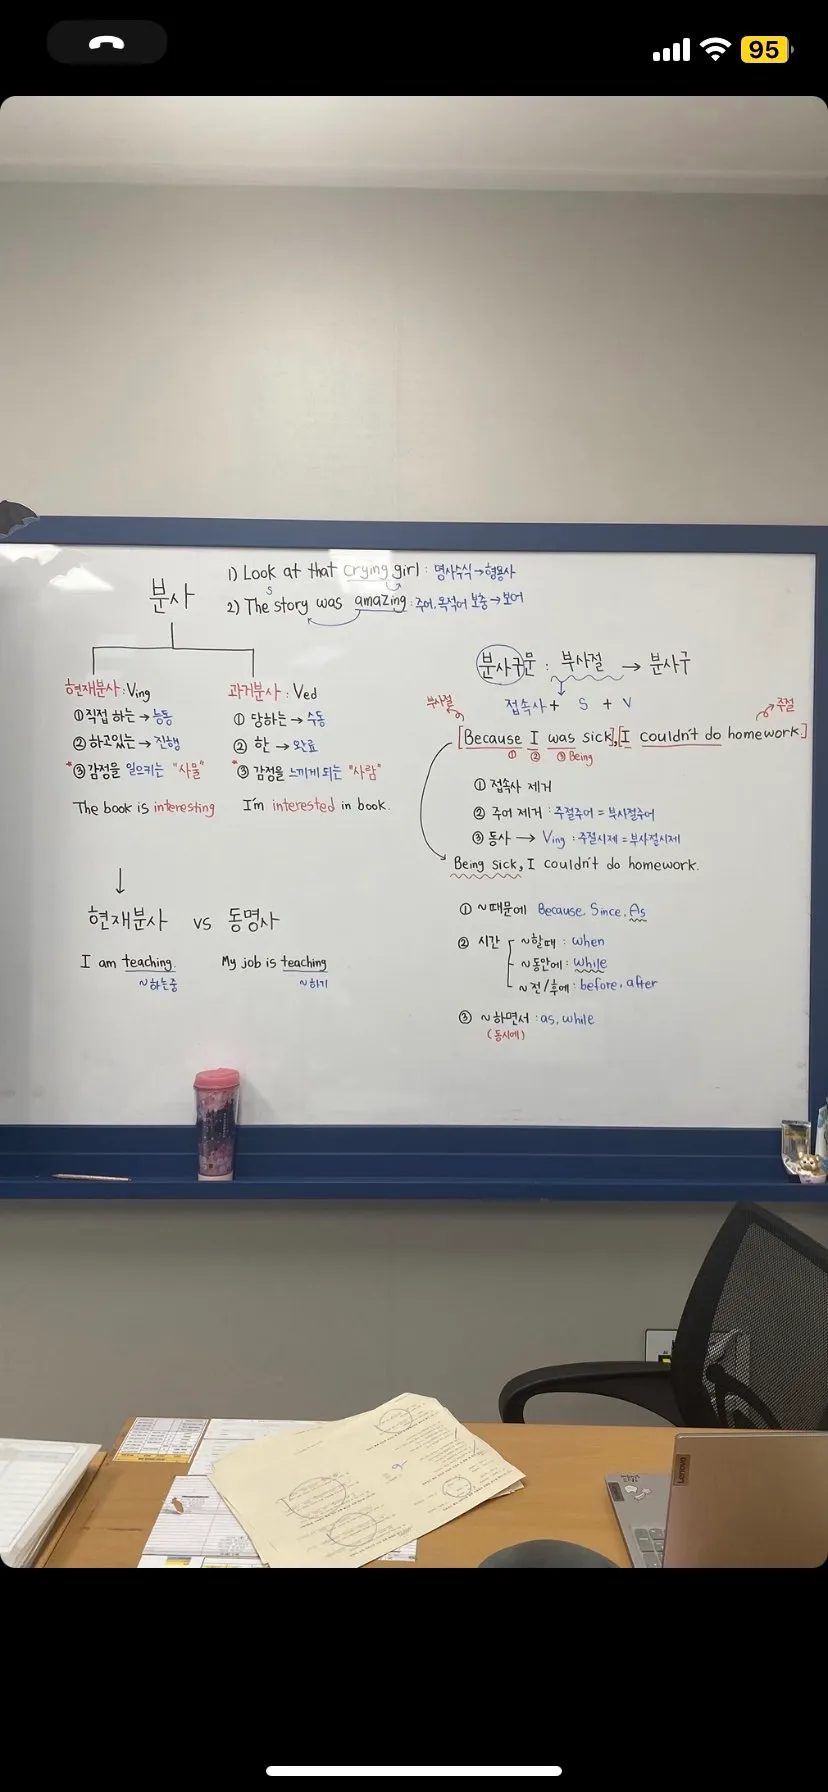 95
분사
1) Look at that crying girl : 명사수식→형용사
S
2) The story was amazing : 주어, 목적어 보충→보어
현재분사 : Ving
① 직접 하는 → 능동
② 하고있는 → 진행
*③ 감정을 일으키는 "사물"
The book is interesting
과거분사 : Ved
① 당하는 → 수동
② 한 → 완료
*③ 감정을 느끼게 되는 "사람"
I'm interested in book.
↓
현재분사 vs 동명사
I am teaching.
~하는중
My job is teaching
~하기
분사구문 : 부사절 → 분사구
접속사 + S + V
부사절
주절
[Because I was sick],[I couldn't do homework.]
① ② ③ Being
① 접속사 제거
② 주어 제거 : 주절주어 = 부사절주어
③ 동사 → Ving : 주절시제 = 부사절시제
Being sick, I couldn't do homework.
① ~때문에 Because, Since, As
② 시간 ~할때 : when
~동안에 : while
~전/후에 : before, after
③ ~하면서 : as, while
(동시에)
Lenovo